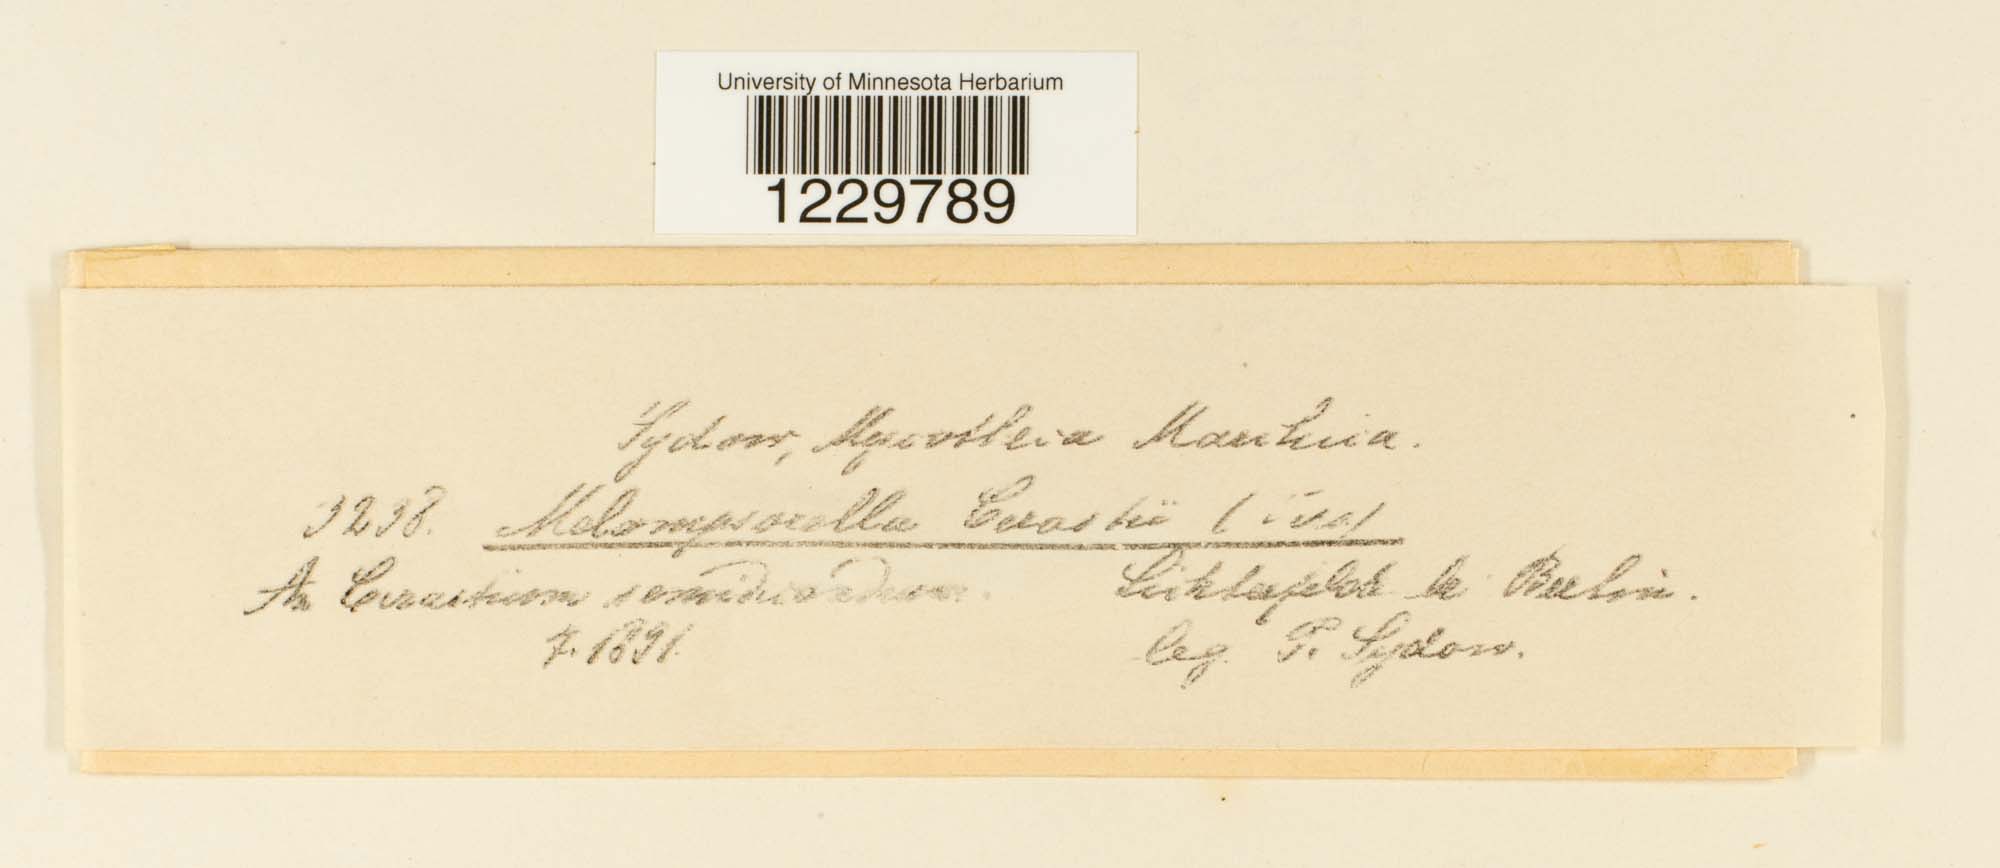 University of Minnesota Herbarium
1229789
Sydow, Mycotheca Marchica.
3238. Melampsorella Cerastii
An Cerastium semidecandrum. Lichterfelde b. Berlin.
7. 1891. leg. P. Sydow.